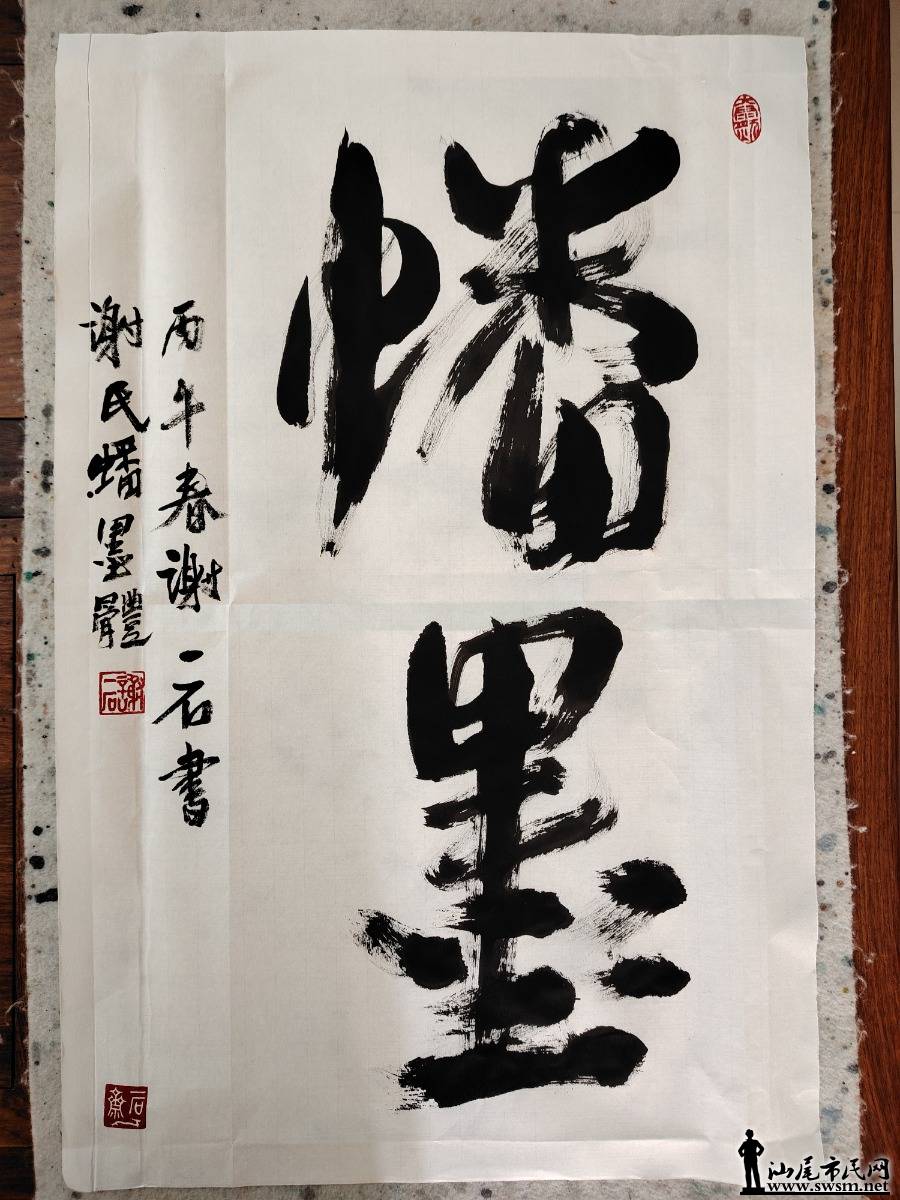 幡墨
丙午春谢一石书
谢氏蟠墨體
谢一石
一石斋
汕尾市民网
www.swsm.net